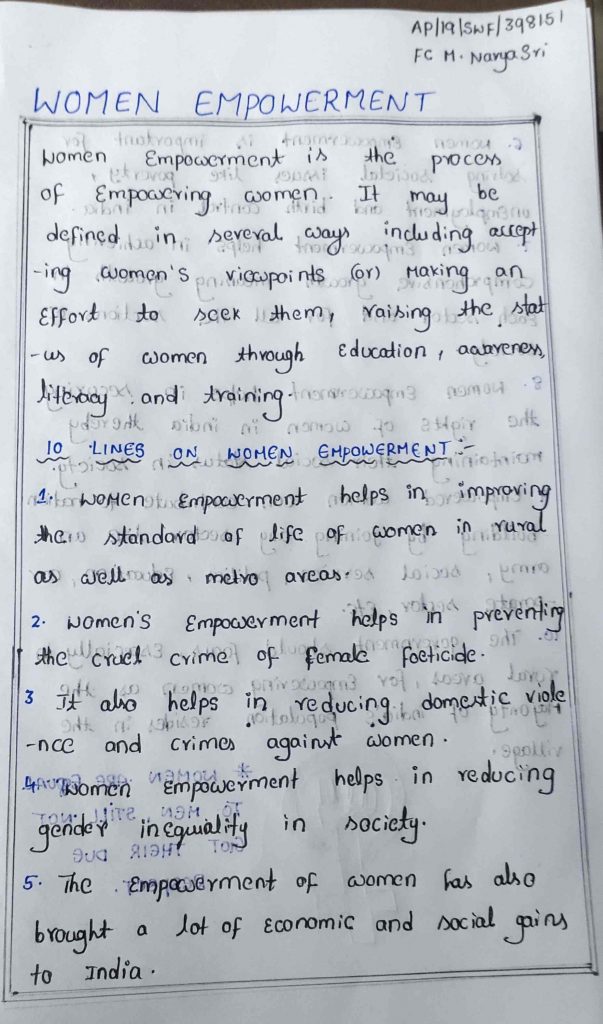 AP/19/SWF/398151
FC M. Navya Sri
WOMEN EMPOWERMENT
Women Empowerment is the process
of Empowering women. It may be
defined in several ways including accept
-ing women's viewpoints (or) Making an
Effort to seek them, raising the stat
-us of women through Education, awareness,
literacy and training.
10 LINES ON WOMEN EMPOWERMENT :-
1. Women Empowerment helps in improving
the standard of life of women in rural
as well as metro areas.
2. Women's Empowerment helps in preventing
the cruel crime of female foeticide.
3 It also helps in reducing domestic viole
-nce and crimes against women.
4. Women Empowerment helps in reducing
gender inequality in society.
5. The Empowerment of women has also
brought a lot of Economic and social gains
to India.